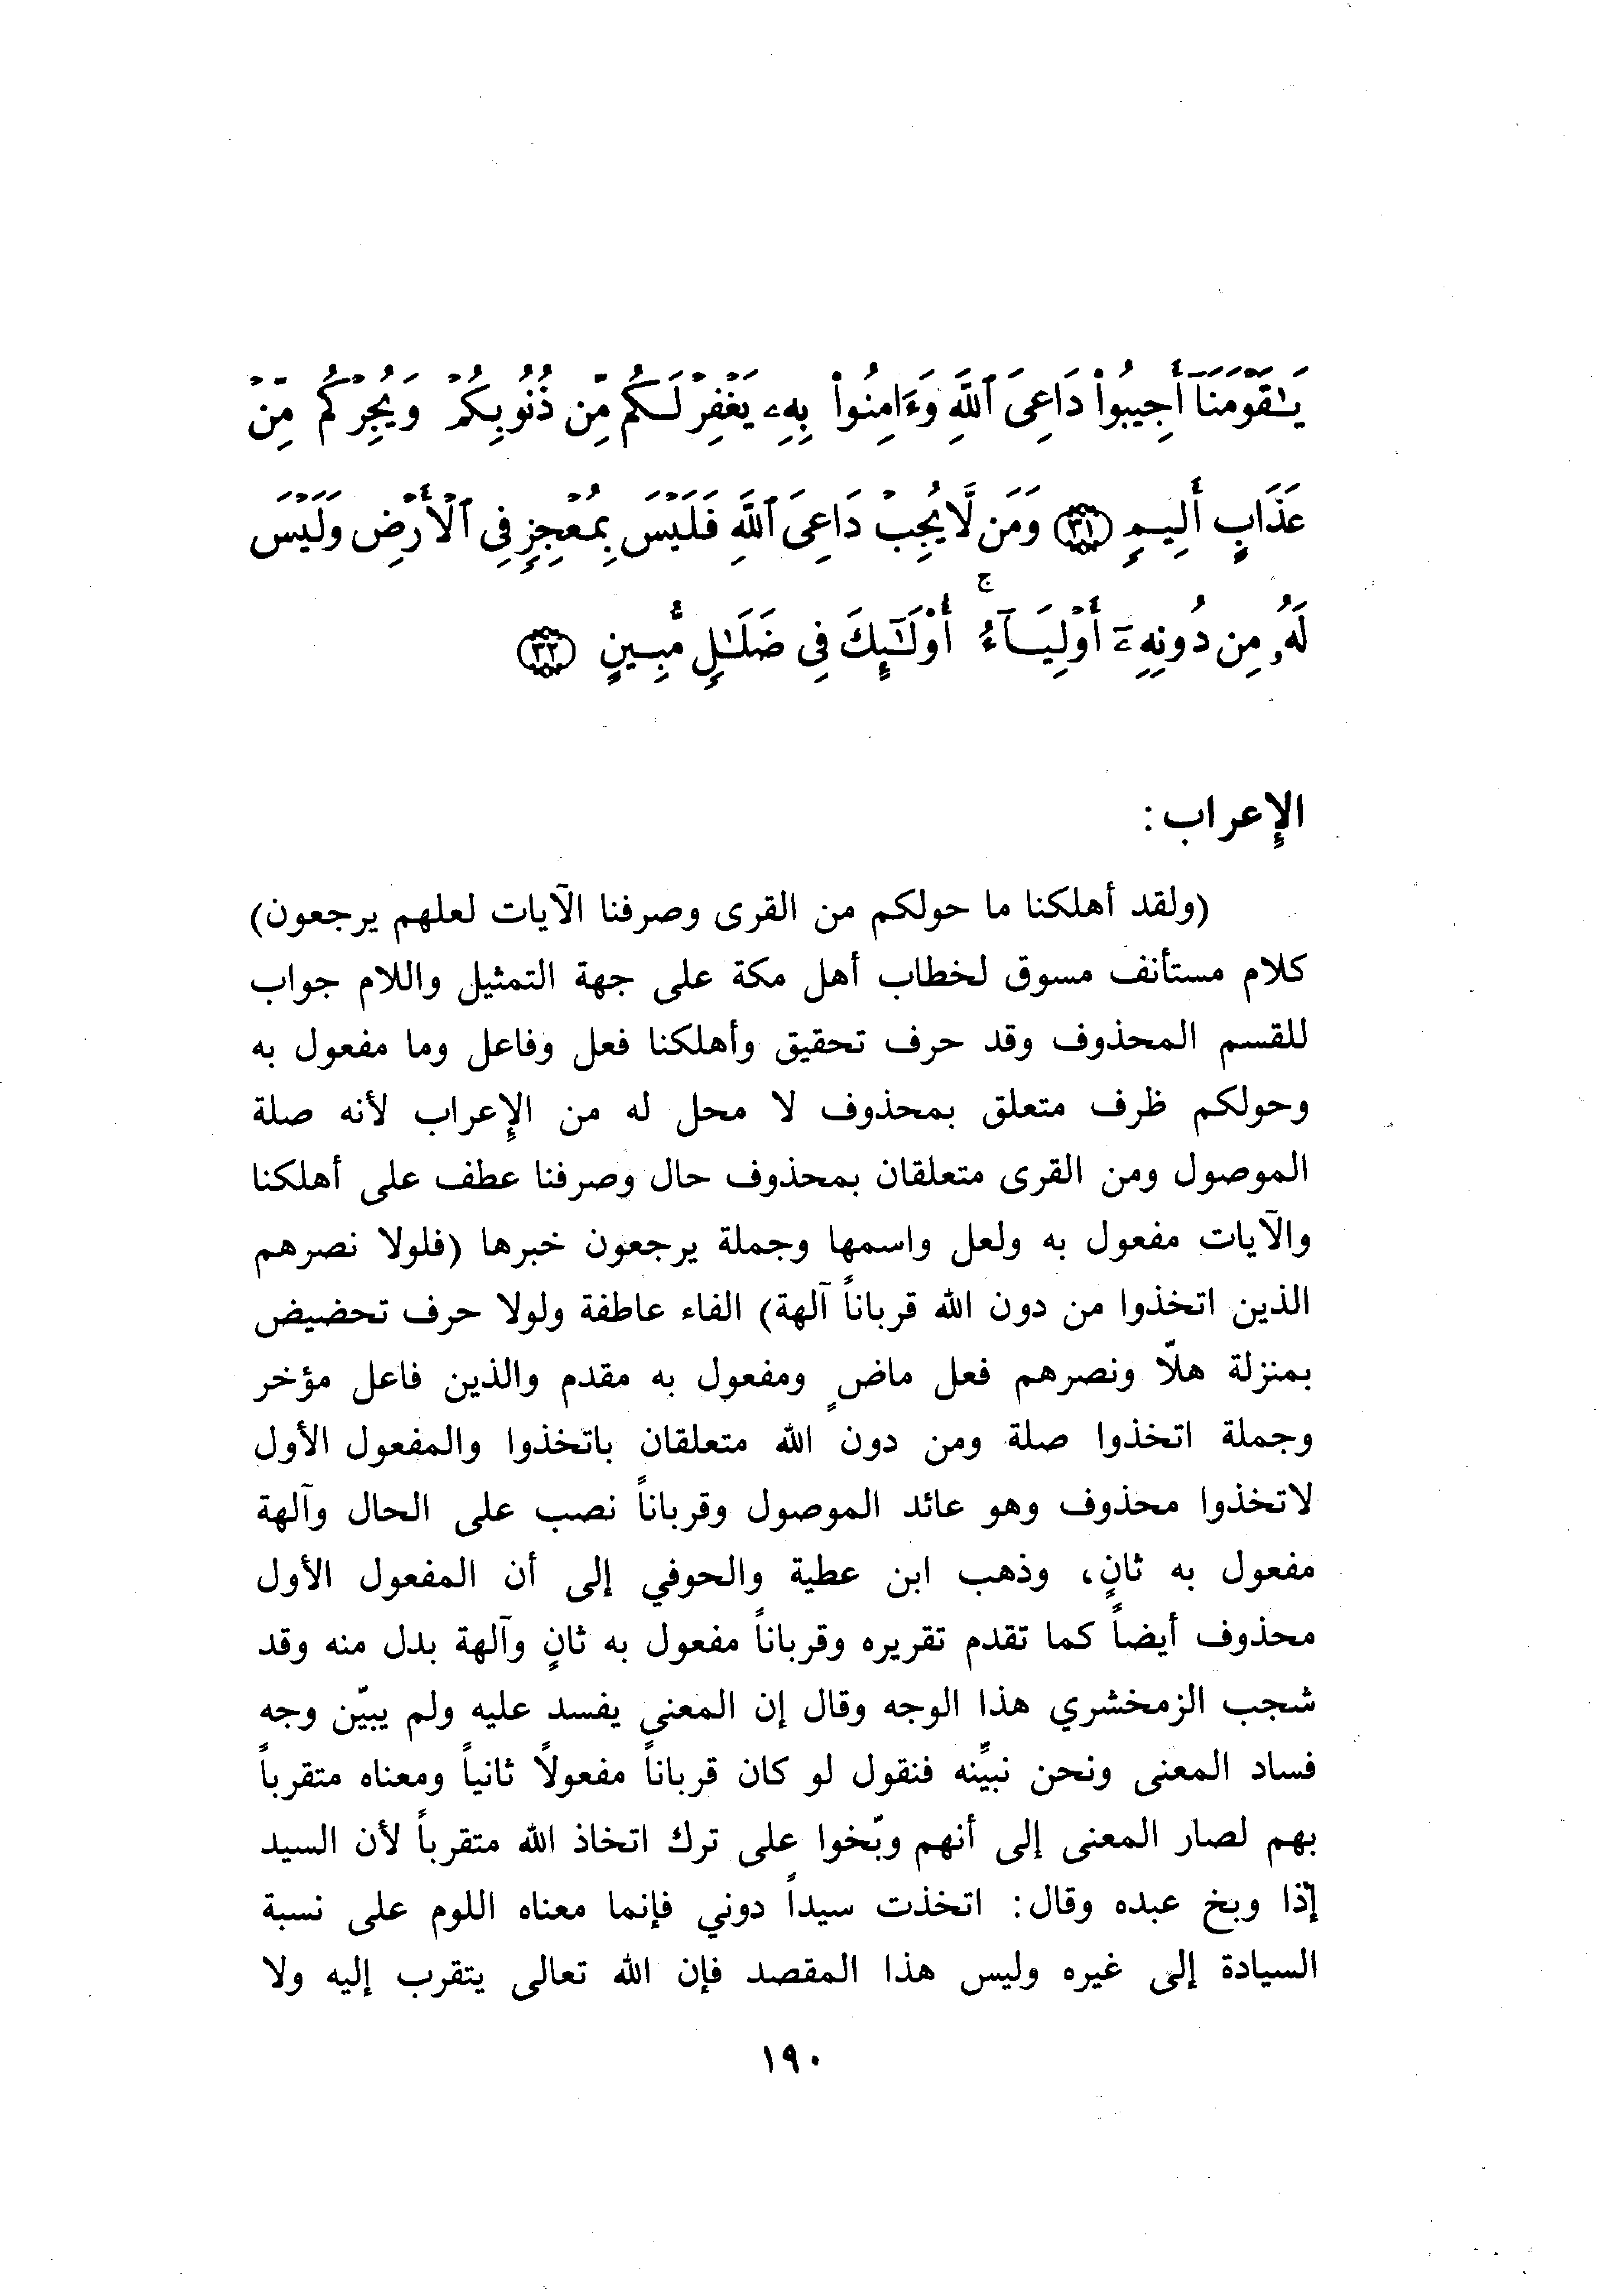 يَٰقَوْمَنَآ أَجِيبُوا۟ دَاعِىَ ٱللَّهِ وَءَامِنُوا۟ بِهِۦ يَغْفِرْ لَكُم مِّن ذُنُوبِكُمْ وَيُجِرْكُم مِّنْ
عَذَابٍ أَلِيمٍ ٣١ وَمَن لَّا يُجِبْ دَاعِىَ ٱللَّهِ فَلَيْسَ بِمُعْجِزٍ فِى ٱلْأَرْضِ وَلَيْسَ
لَهُۥ مِن دُونِهِۦٓ أَوْلِيَآءُ ۚ أُو۟لَٰٓئِكَ فِى ضَلَٰلٍ مُّبِينٍ ٣٢
الإِعراب :
(ولقد أهلكنا ما حولكم من القرى وصرفنا الآيات لعلهم يرجعون)
كلام مستأنف مسوق لخطاب أهل مكة على جهة التمثيل واللام جواب
للقسم المحذوف وقد حرف تحقيق وأهلكنا فعل وفاعل وما مفعول به
وحولكم ظرف متعلق بمحذوف لا محل له من الإِعراب لأنه صلة
الموصول ومن القرى متعلقان بمحذوف حال وصرفنا عطف على أهلكنا
والآيات مفعول به ولعل واسمها وجملة يرجعون خبرها (فلولا نصرهم
الذين اتخذوا من دون الله قرباناً آلهة) الفاء عاطفة ولولا حرف تحضيض
بمنزلة هلّا ونصرهم فعل ماضٍ ومفعول به مقدم والذين فاعل مؤخر
وجملة اتخذوا صلة ومن دون الله متعلقان باتخذوا والمفعول الأول
لاتخذوا محذوف وهو عائد الموصول وقرباناً نصب على الحال وآلهة
مفعول به ثانٍ، وذهب ابن عطية والحوفي إلى أن المفعول الأول
محذوف أيضاً كما تقدم تقريره وقرباناً مفعول به ثانٍ وآلهة بدل منه وقد
شجب الزمخشري هذا الوجه وقال إن المعنى يفسد عليه ولم يبيّن وجه
فساد المعنى ونحن نبيِّنه فنقول لو كان قرباناً مفعولاً ثانياً ومعناه متقرباً
بهم لصار المعنى إلى أنهم وبّخوا على ترك اتخاذ الله متقرباً لأن السيد
إذا وبخ عبده وقال: اتخذت سيداً دوني فإنما معناه اللوم على نسبة
السيادة إلى غيره وليس هذا المقصد فإن الله تعالى يتقرب إليه ولا
١٩٠